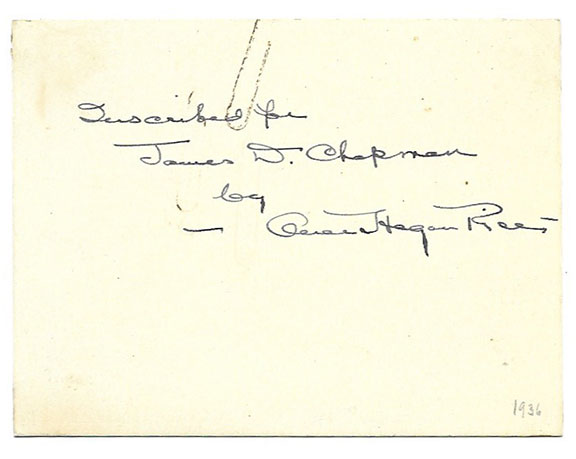 Inscribed for
James D. Chapman
by
— Alice Hegan Rice —
1936